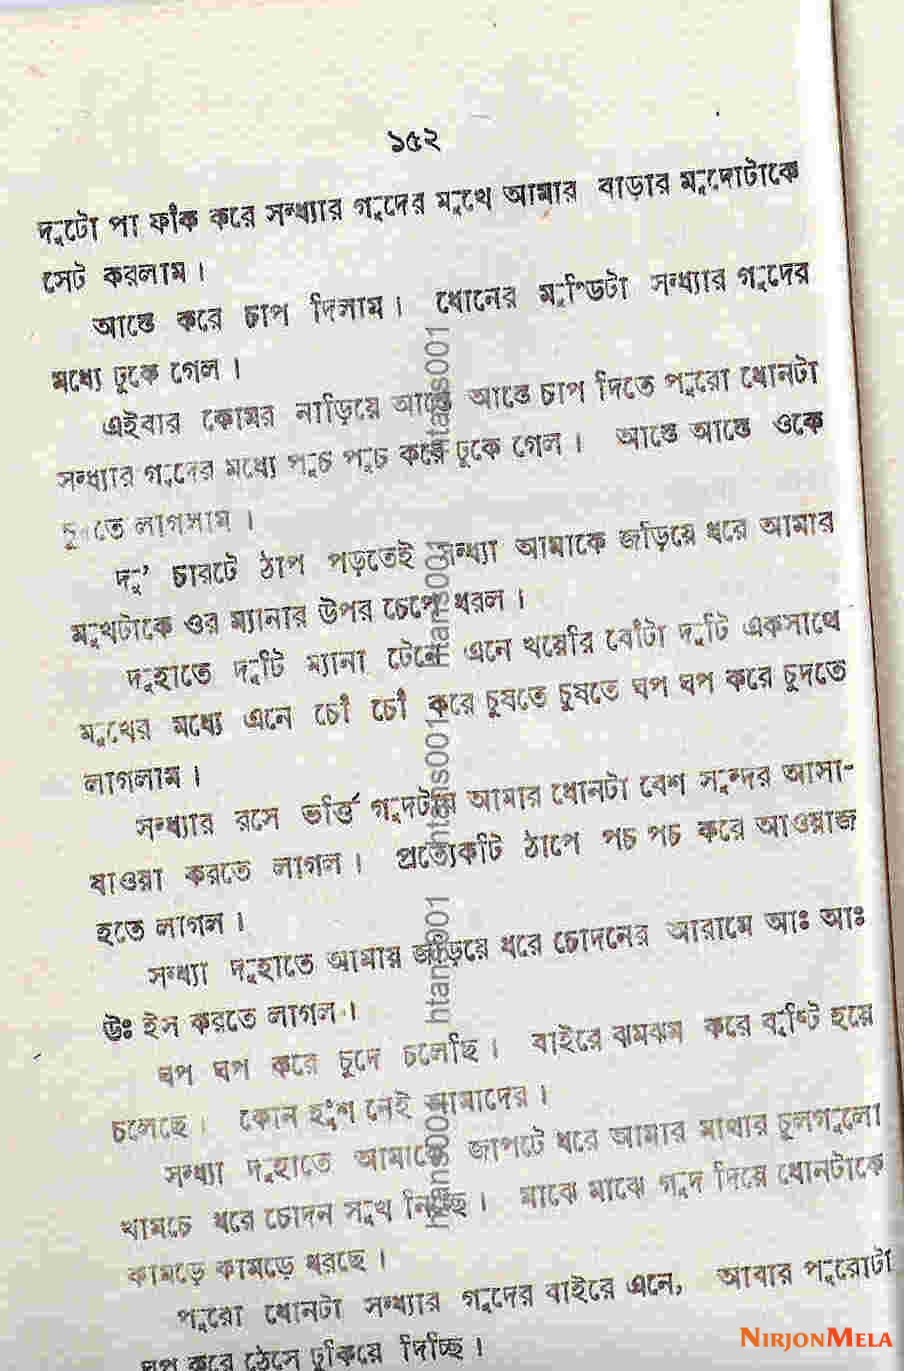 ১৫২
দুটো পা ফাঁক করে সন্ধ্যার গুদের মুখে আমার বাড়ার মুদোটাকে
সেট করলাম।
আস্তে করে চাপ দিলাম। ধোনের মুণ্ডিটা সন্ধ্যার গুদের
মধ্যে ঢুকে গেল।
এইবার কোমর নাড়িয়ে আস্তে আস্তে চাপ দিতে পুরো ধোনটা
সন্ধ্যার গুদের মধ্যে পুচ পুচ করে ঢুকে গেল। আস্তে আস্তে ওকে
লাগলাম।
দু’ চারটে ঠাপ পড়তেই সন্ধ্যা আমাকে জড়িয়ে ধরে আমার
মুখটাকে ওর ম্যানার উপর চেপে ধরল।
দুহাতে দুটি ম্যানা টেনে এনে খয়েরি বোঁটা দুটি একসাথে
মুখের মধ্যে এনে চোঁ চোঁ করে চুষতে চুষতে ঘপ ঘপ করে চুদতে
লাগলাম।
সন্ধ্যার রসে ভর্ত্তি গুদটায় আমার ধোনটা বেশ সুন্দর আসা-
যাওয়া করতে লাগল। প্রত্যেকটি ঠাপে পচ পচ করে আওয়াজ
হতে লাগল।
সন্ধ্যা দুহাতে আমায় জড়িয়ে ধরে চোদনের আরামে আঃ আঃ
উঃ ইস করতে লাগল।
ঘপ ঘপ করে চুদে চলেছি। বাইরে ঝমঝম করে বৃষ্টি হয়ে
চলেছে। কোন হুঁশ নেই আমাদের।
সন্ধ্যা দুহাতে আমাকে জাপটে ধরে আমার মাথার চুলগুলো
খামচে ধরে চোদন সুখ নিচ্ছে। মাঝে মাঝে গুদ দিয়ে ধোনটাকে
কামড়ে কামড়ে ধরছে।
পুরো ধোনটা সন্ধ্যার গুদের বাইরে এনে, আবার পুরোটা
ঘপ করে ঠেসে ঢুকিয়ে দিচ্ছি।
htans001 htans001 htans001 htans001 htans001
NIRJONMELA